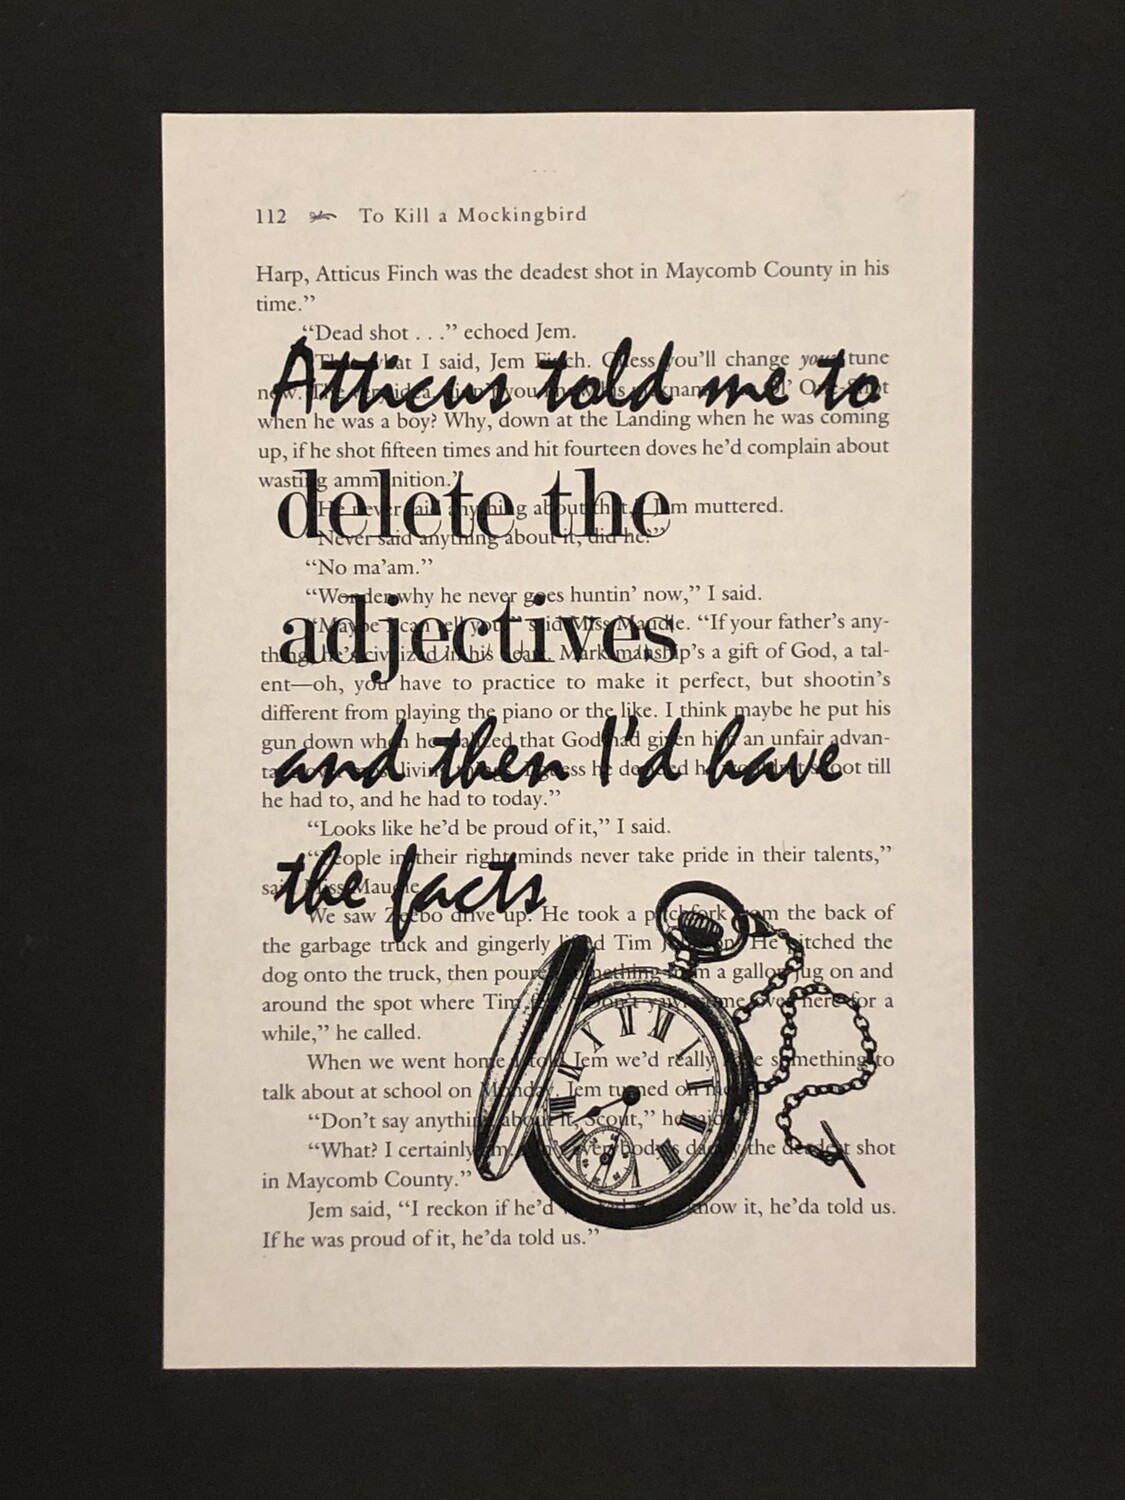 112 To Kill a Mockingbird
Harp, Atticus Finch was the deadest shot in Maycomb County in his
time.”
“Dead shot . . .” echoed Jem.
what I said, Jem Finch. Guess you’ll change your tune
Atticus told me to
when he was a boy? Why, down at the Landing when he was coming
up, if he shot fifteen times and hit fourteen doves he’d complain about
wasting ammunition.”
delete the
“He never said anything about that,” Jem muttered.
“Never said anything about it, did he?”
“No ma’am.”
“Wonder why he never goes huntin’ now,” I said.
adjectives
“Maybe I can tell you,” said Miss Maudie. “If your father’s any-
thing, he’s civilized in his heart. Marksmanship’s a gift of God, a tal-
ent—oh, you have to practice to make it perfect, but shootin’s
different from playing the piano or the like. I think maybe he put his
gun down when he realized that God had given him an unfair advan-
and then I'd have
till
he had to, and he had to today.”
“Looks like he’d be proud of it,” I said.
“People in their right minds never take pride in their talents,”
said Miss Maudie.
the facts
We saw Zeebo drive up. He took a pitchfork from the back of
the garbage truck and gingerly lifted Tim Johnson. He pitched the
dog onto the truck, then poured something from a gallon jug on and
around the spot where Tim fell. “Don’t yawl come over here for a
while,” he called.
When we went home I told Jem we’d really have something to
talk about at school on Monday. Jem turned on me.
“Don’t say anything about it, Scout,” he said.
“What? I certainly am. everybody’s daddy the deadest shot
in Maycomb County.”
Jem said, “I reckon if he’d know it, he’da told us.
If he was proud of it, he’da told us.”